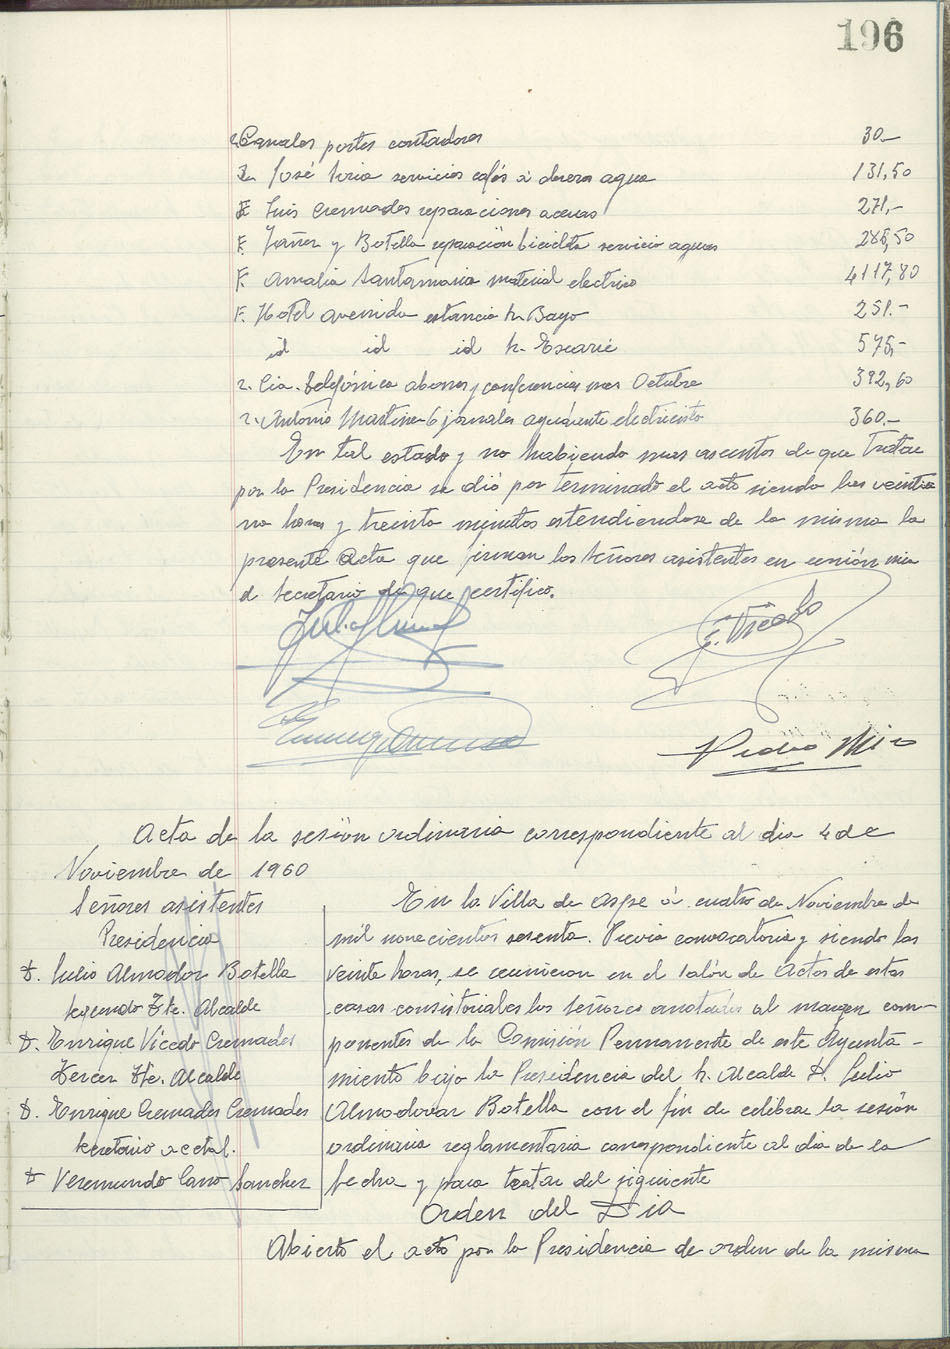 196
Canales portes contadores 30.-
José Soria servicios cafés a doceros agua 131,50
F. Luis Cremades reparaciones aceras 271,-
F. Yañez y Botella reparación bicicleta servicio aguas 286,50
F. Amalia Santamaria material electrico 4117,80
F. Hotel avenida estancia Sr. Bayo 251.-
id id id Sr. Escarié 575,-
r. Cia. telefónica abonos y conferencias mes Octubre 392,60
r. Antonio Martinez 6 jornales ayudante electricista 360.-
En tal estado y no habiendo mas asuntos de que tratar
por la Presidencia se dió por terminado el acto siendo las veintiu
na horas y treinta minutos estendiendose de la misma la
presente acta que firman los Señores asistentes en unión mia
el Secretario de que certifico.
E. Vicedo
Pedro Miro
Acta de la sesión ordinaria correspondiente al dia 4 de
Noviembre de 1960
Señores asistentes
Presidencia
D. Julio Almodovar Botella
Segundo Tte. Alcalde
D. Enrique Vicedo Cremades
Tercer Tte. Alcalde
D. Enrique Cremades Cremades
Secretario acctal.
D. Veremundo Cano Sanchez
En la Villa de Aspe a cuatro de Noviembre de
mil novecientos sesenta. Previa convocatoria y siendo las
veinte horas, se reunieron en el Salón de Actos de estas
casas consistoriales los Señores anotados al margen com-
ponentes de la Comisión Permanente de este Ayunta-
miento bajo la Presidencia del Sr. Alcalde D. Julio
Almodovar Botella con el fin de celebrar la sesión
ordinaria reglamentaria correspondiente al dia de la
fecha y para tratar del siguiente
Orden del Dia
Abierto el acto por la Presidencia de orden de la misma